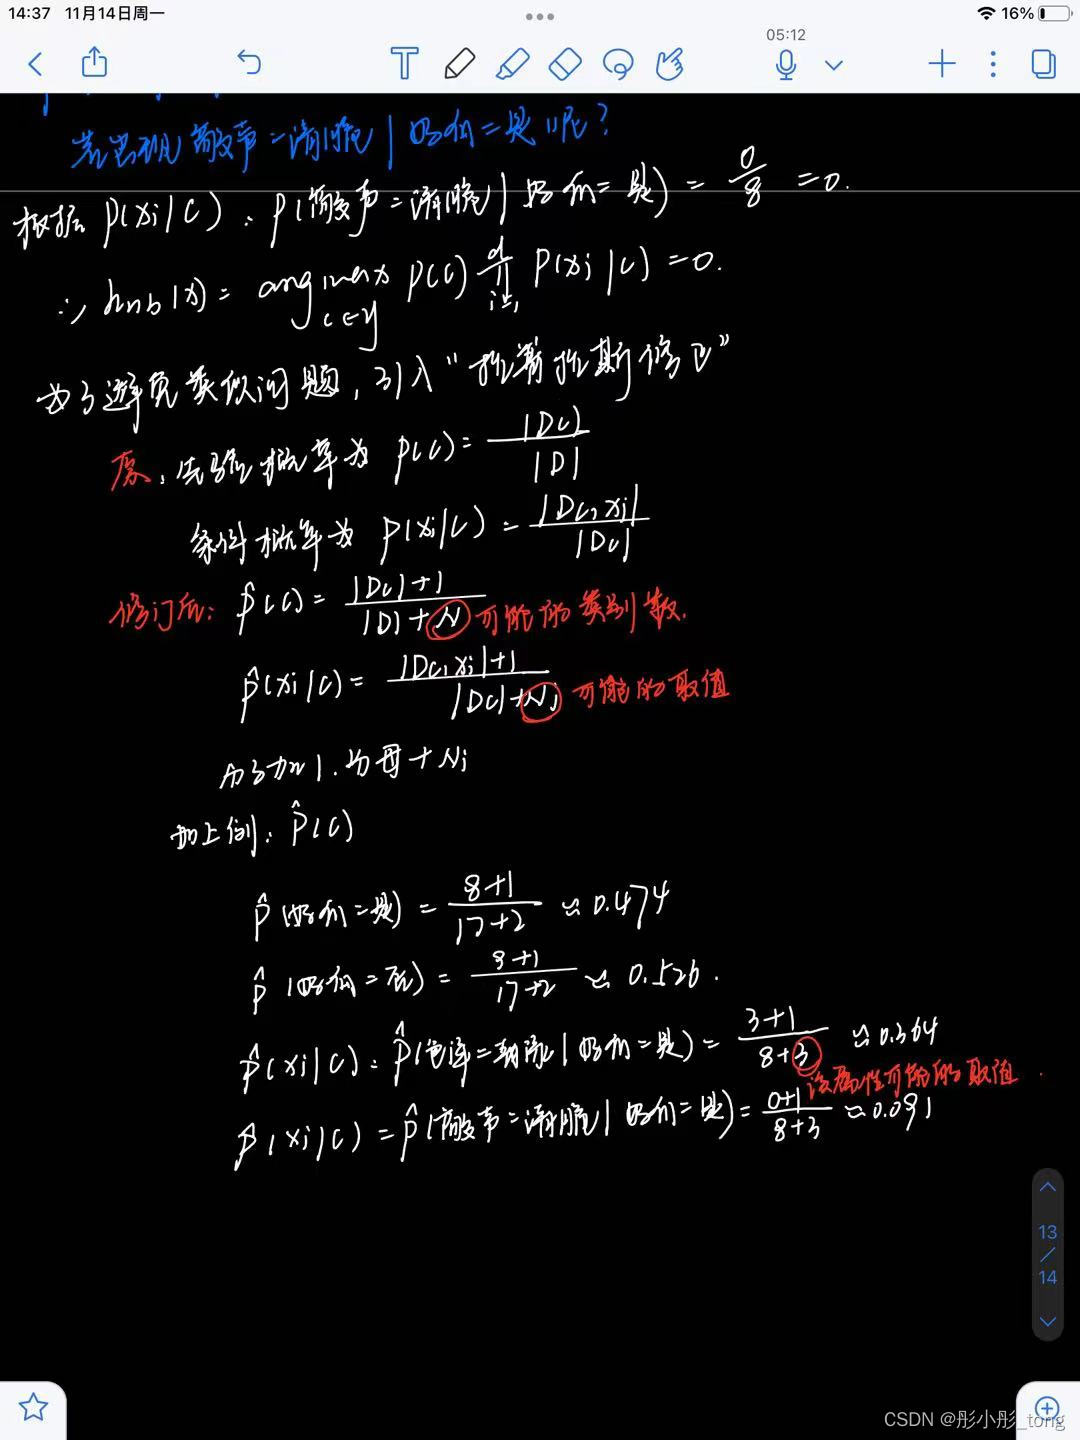 14:37 11月14日周一
16%
05:12
若出现 敲声=清脆 | 好瓜=是 呢?
根据 P(xi|C): P(敲声=清脆 | 好瓜=是) = 0/8 = 0.
∴ hnb(x) = arg max c∈y P(C) d ∏ i=1 P(xi|C) = 0.
为了避免类似问题, 引入“拉普拉斯修正”
原: 先验概率为 P(C) = |Dc| / |D|
条件概率为 P(xi|C) = |Dc,xi| / |Dc|
修订后: P̂(C) = |Dc|+1 / |D|+N 可能的类别数.
P̂(xi|C) = |Dc,xi|+1 / |Dc|+Ni 可能的取值
分子加1. 分母+Ni
如上例: P̂(C)
P̂(好瓜=是) = 8+1 / 17+2 ≈ 0.474
P̂(好瓜=否) = 9+1 / 17+2 ≈ 0.526.
P̂(xi|C): P̂(色泽=乌黑 | 好瓜=是) = 3+1 / 8+3 ≈ 0.364
该属性可能的取值.
P̂(xi|C) = P̂(敲声=清脆 | 好瓜=是) = 0+1 / 8+3 ≈ 0.091
13
/
14
CSDN @彤小彤_tong